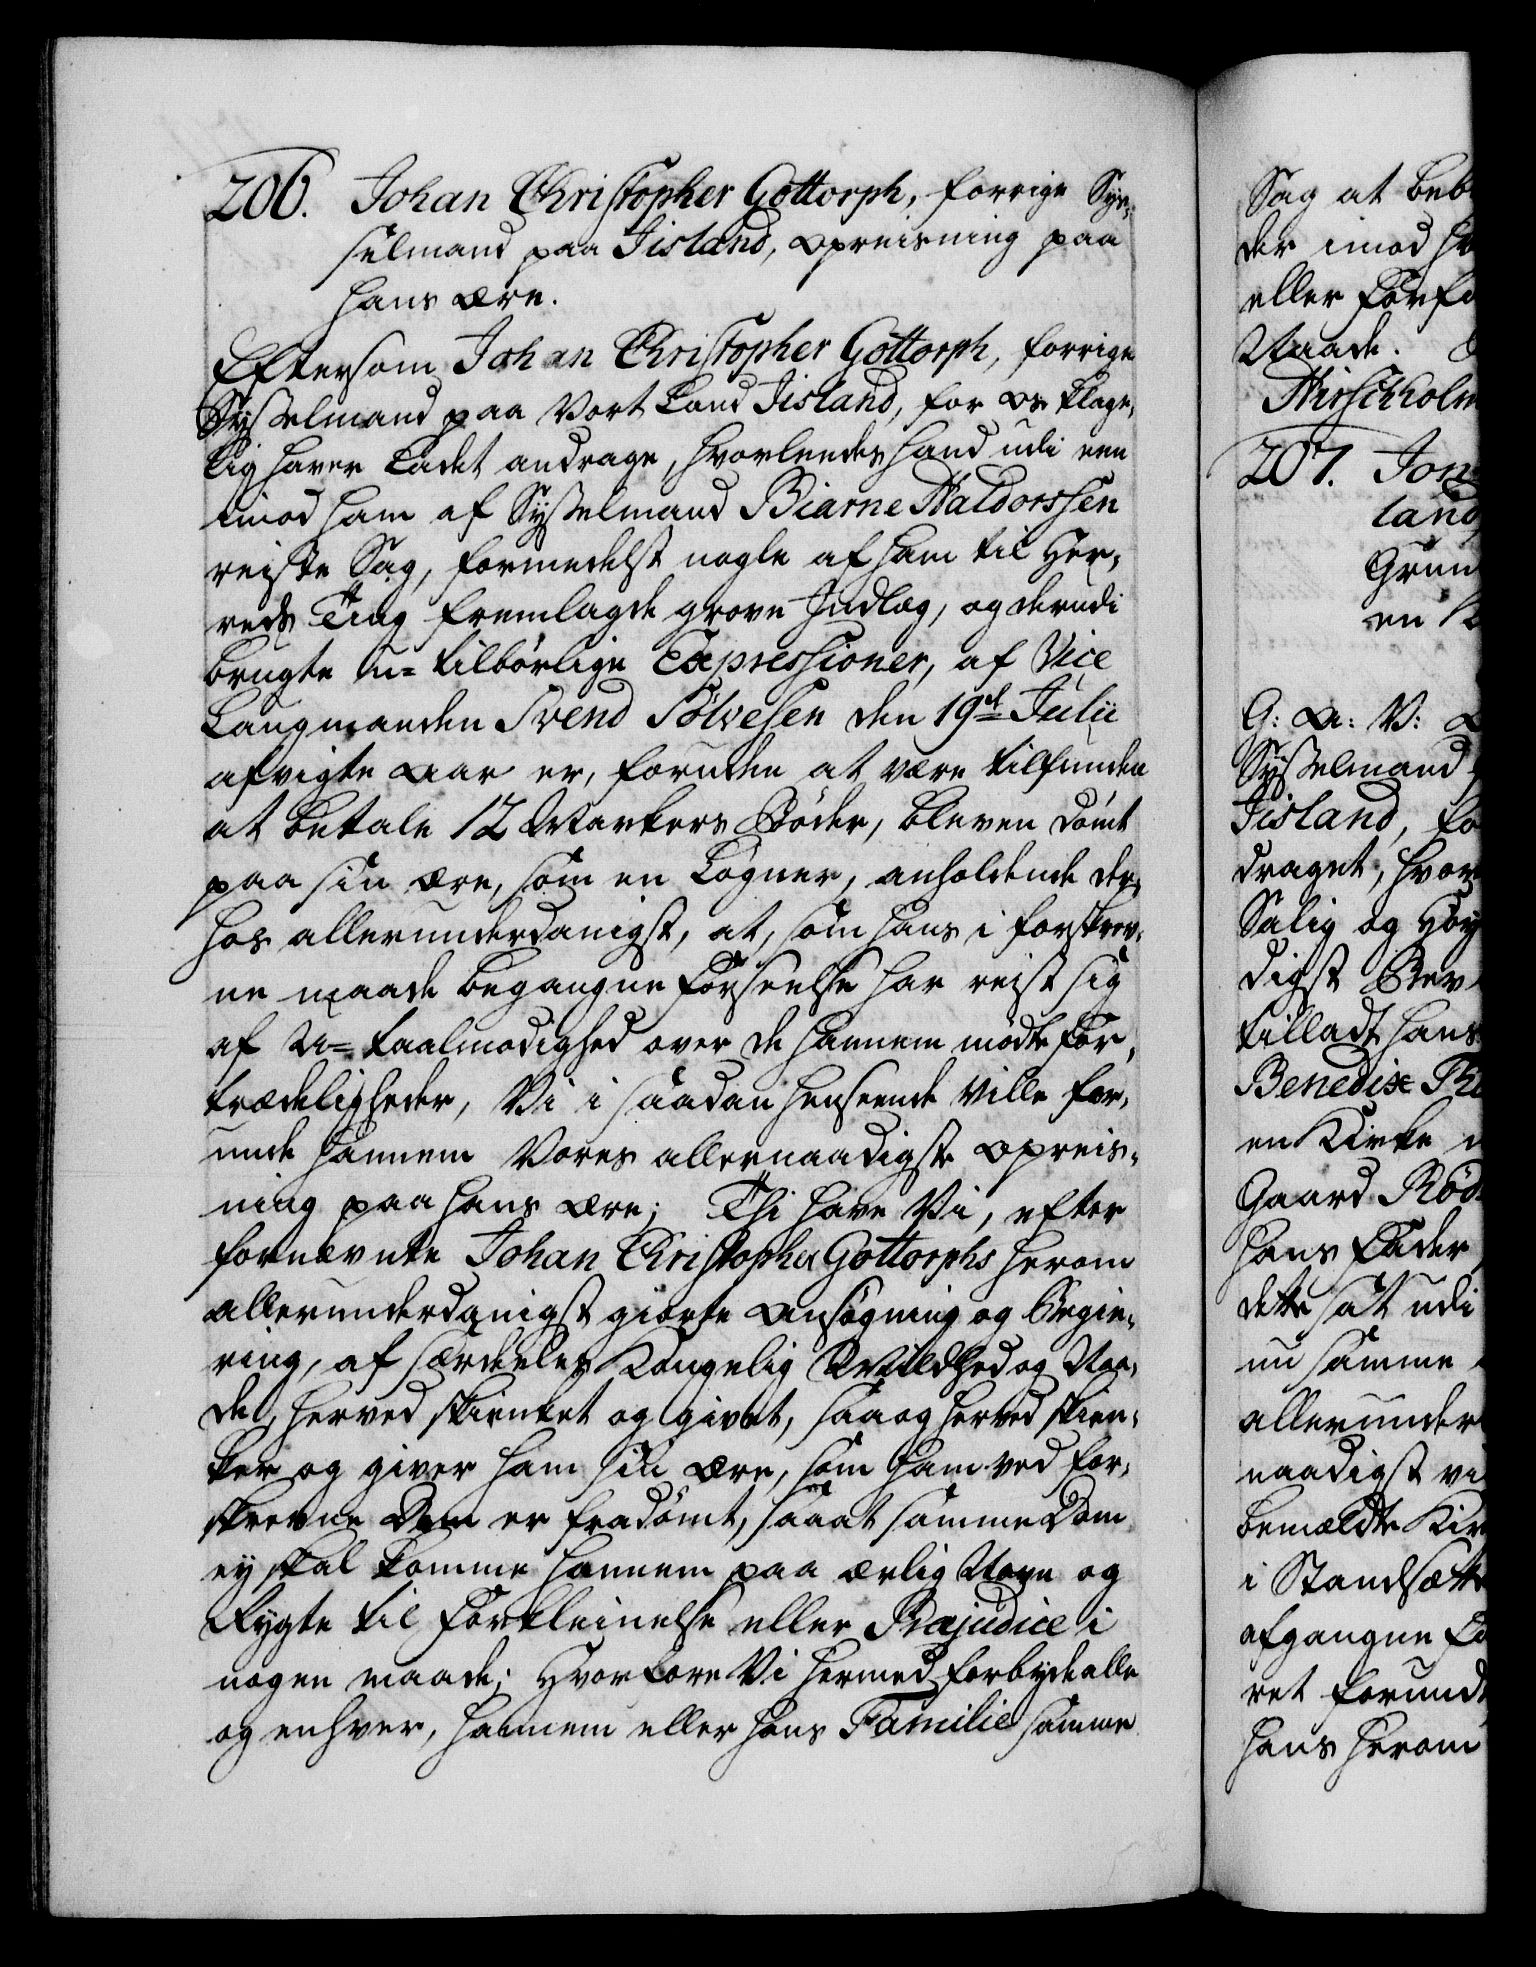 206. Johan Christopher Gottorph, forrige Sys-
selmand paa Jisland, opreisning paa
hans ære.
Eftersom Johan Christopher Gottorph, forrige
Sysselmand paa Vort Land Jisland, for os klage-
lig haver ladet andrage, hvorledes hand udi een
imod ham af Sysselmand Biarne Haldorssen
reiste Sag, formedelst nogle af ham til Her-
reds Ting fremlagde grove Indlæg, og derudi
brugte u-tilbørlige Expressioner, af Vice
Laugmanden Svend Sølvesen den 19de Julii
afvigte aar er, foruden at være tilfunden
at betale 12 Markers Bøder, bleven dømt
paa sin ære, som en Løgner, anholdende der-
hos allerunderdanigst, at, som hans i forskrev-
ne maade begangne Forseelse har reist sig
af U-taalmodighed over de hannem mødte For-
trædeligheder, Vi i saadan henseende ville for-
unde hannem Vores allernaadigste opreis-
ning paa hans ære; Thi have Vi, efter
fornævnte Johan Christopher Gottorphs herom
allerunderdanigst giorte ansøgning og Begie-
ring, af særdeles Kongelig Mildhed og Naa-
de, herved skienket og givet, saa og herved skien-
ker og giver ham sin ære, som ham ved for-
skrevne Dom er fradømt, saa at samme Dom
ey skal komme hannem paa ærlig Navn og
Rygte til Forkleinelse eller Præjudice i
nogen maade; Hvorfore Vi hermed forbyde alle
og enhver, hannem eller hans Familie samme
Sag at beb
der imod h
eller Forfa
Naade.
Hirschholm
207. Jon
land
Grun
en
G: A: V:
Sysselmand
Jisland, fo
draget, hvor
Salig og Høy
digst Bev
tilladt hans
Benedix Th
en Kirke
Gaard Rød
hans Fader
dette sat udi
nu samme
allerunder
naadigst vi
bemældte Kir
i Stand sætte
afgangne Fa
ret forundt
hans herom